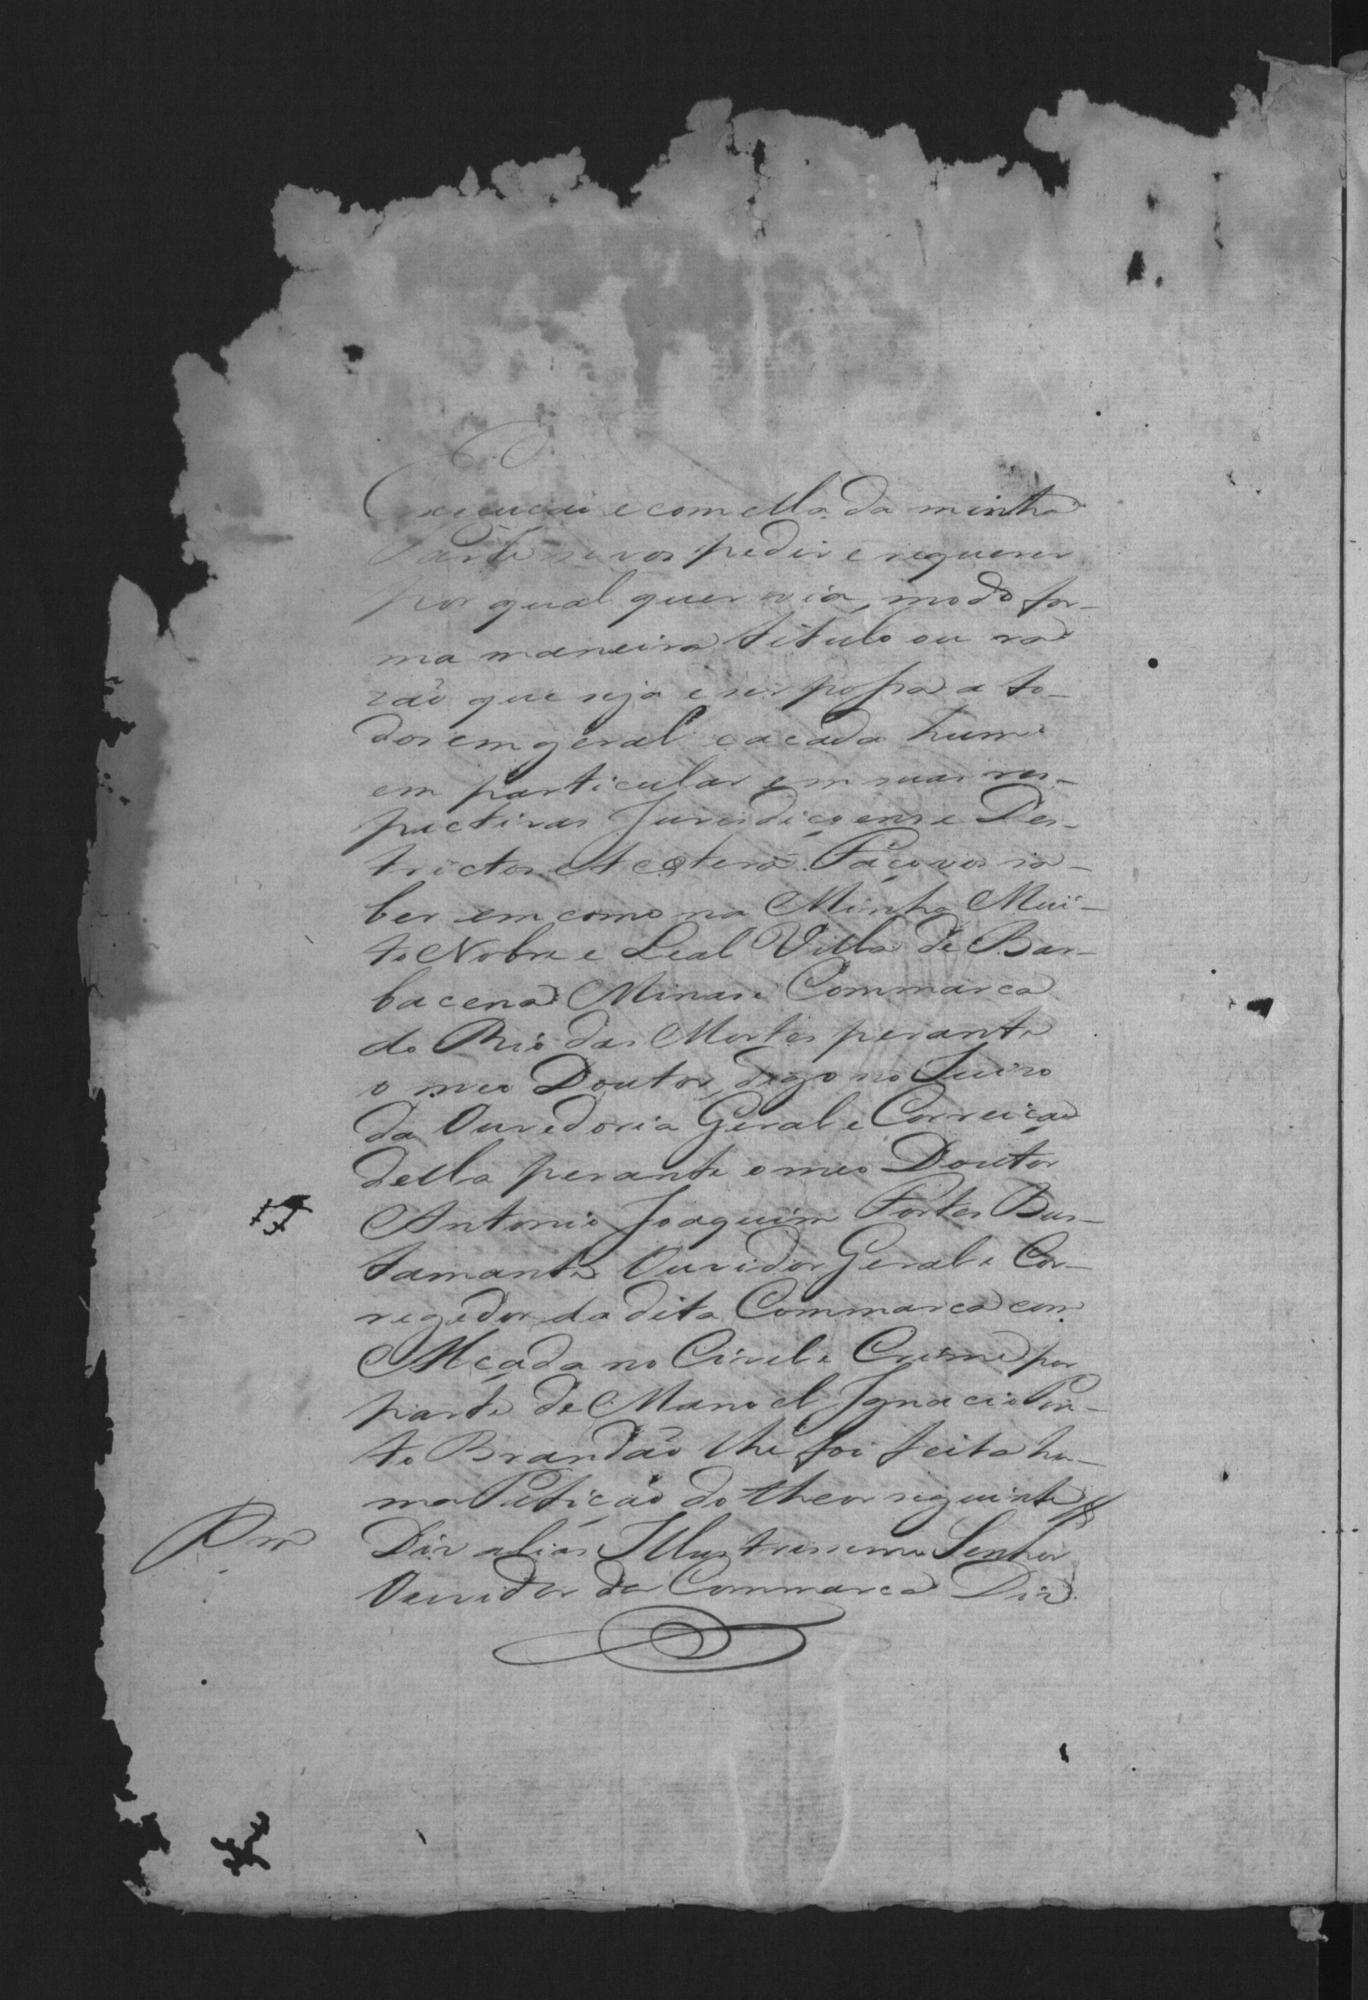 Execuçaõ e com ella da minha
Parte se vos pedir e requerer
por qual quer via, modo for-
ma maneira titulo ou ra
zaõ que seja e ser possa a to-
dos em geral e a cada hum
em particular em suas res-
pectivas Jurisdiçoens e Des-
trictos et cetera. Faço vos sa-
ber em como na Minha Mui-
to Nobre e Leal Villa de Bar-
bacena Minas e Commarca
do Rio das Mortes perante
o meo Doutor, digo no Juizo
da Ouvedoria Geral e Correiçaõ
della perante o meo Doutor
Antonio Joaquim Fortes Bus-
tamante Ouvidor Geral e Cor-
regedor da dita Commarca com
Alçada no Civel e Crime por
parte de Manoel Ignacio Pin-
to Brandaõ lhe foi feita hu-
ma Petiçaõ do theor seguinte
Diz alias Illustrissimo Senhor
Ouvidor da Commarca Diz